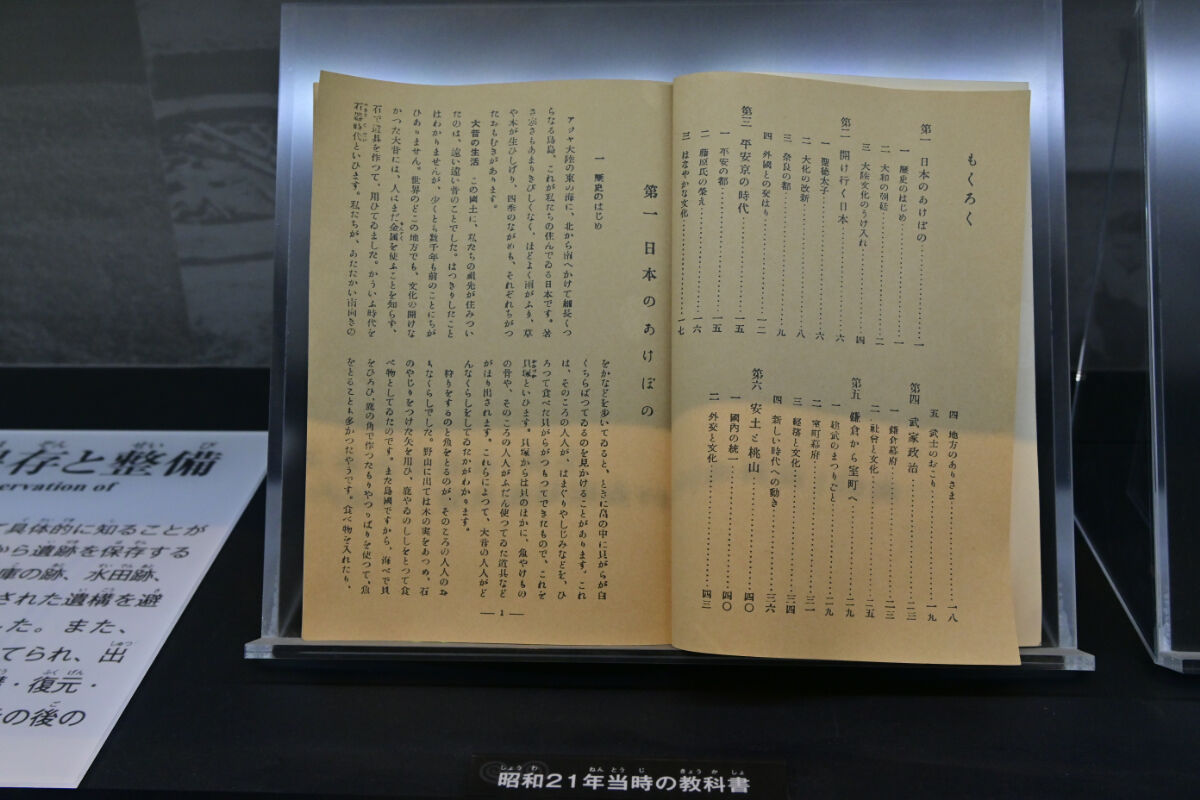 もくろく
第一 日本のあけぼの……一
一 歴史のはじめ……一
二 大和の朝廷……二
三 大陸文化のうけ入れ……四
第二 開け行く日本……六
一 聖徳太子……六
二 大化の改新……八
三 奈良の都……九
四 外國との交はり……一二
第三 平安京の時代……一五
一 平安の都……一五
二 藤原氏の榮え……一六
三 はなやかな文化……一七
四 地方のありさま……一八
五 武士のおこり……一九
第四 武家政治……二三
一 鎌倉幕府……二三
二 社會と文化……二五
第五 鎌倉から室町へ……二九
一 建武のまつりごと……二九
二 室町幕府……三一
三 經濟と文化……三四
四 新しい時代への動き……三六
第六 安土と桃山……四〇
一 國内の統一……四〇
二 外交と文化……四三
第一 日本のあけぼの
一 歴史のはじめ
アジヤ大陸の東の海に、北から南へかけて細長くつ
らなる島島、これが私たちの住んでゐる日本です。暑
さ寒さもあまりきびしくなく、ほどよく雨がふり、草
や木が生ひしげり、四季のながめも、それぞれちがつ
たおもむきがあります。
大昔の生活 この國土に、私たちの祖先が住みつい
たのは、遠い遠い昔のことでした。はつきりしたこと
はわかりませんが、少くとも數千年も前のことにちが
ひありません。世界のどこの地方でも、文化の開けな
かつた大昔には、人はまだ金属を使ふことを知らず、
石で道具を作つて、用ひてゐました。かういふ時代を
石器時代といひます。私たちが、あたたかい南向きの
をかなどを歩いてゐると、ときに畠の中に貝がらが白
くちらばつてゐるのを見かけることがあります。これ
は、そのころの人人が、はまぐりやしじみなどを、ひ
ろつて食べた貝がらがつもつてできたもので、これを
貝塚といひます。貝塚からは貝のほかに、魚やけもの
の骨や、そのころの人人がふだん使つてゐた道具など
がほり出されます。これらによつて、大昔の人人がど
んなくらしをしてゐたかがわかります。
狩りをするのと魚をとるのが、そのころの人人のお
もなくらしでした。野山に出ては木の實をあつめ、石
のやじりをつけた矢を用ひ、鹿やゐのししをとつて食
べ物としてゐたのです。また島國ですから、海べで貝
をひろひ、鹿の角で作つたもりやつりばりを使つて、魚
をとることも多かつたやうです。食べ物を入れたり、
— 1 —
存と整備
ervation of
て具体的に知ることが
から遺跡を保存する
庫の跡、水田跡、
された遺構を避
した。また、
てられ、出
・復元・
の後の
昭和21年当時の教科書